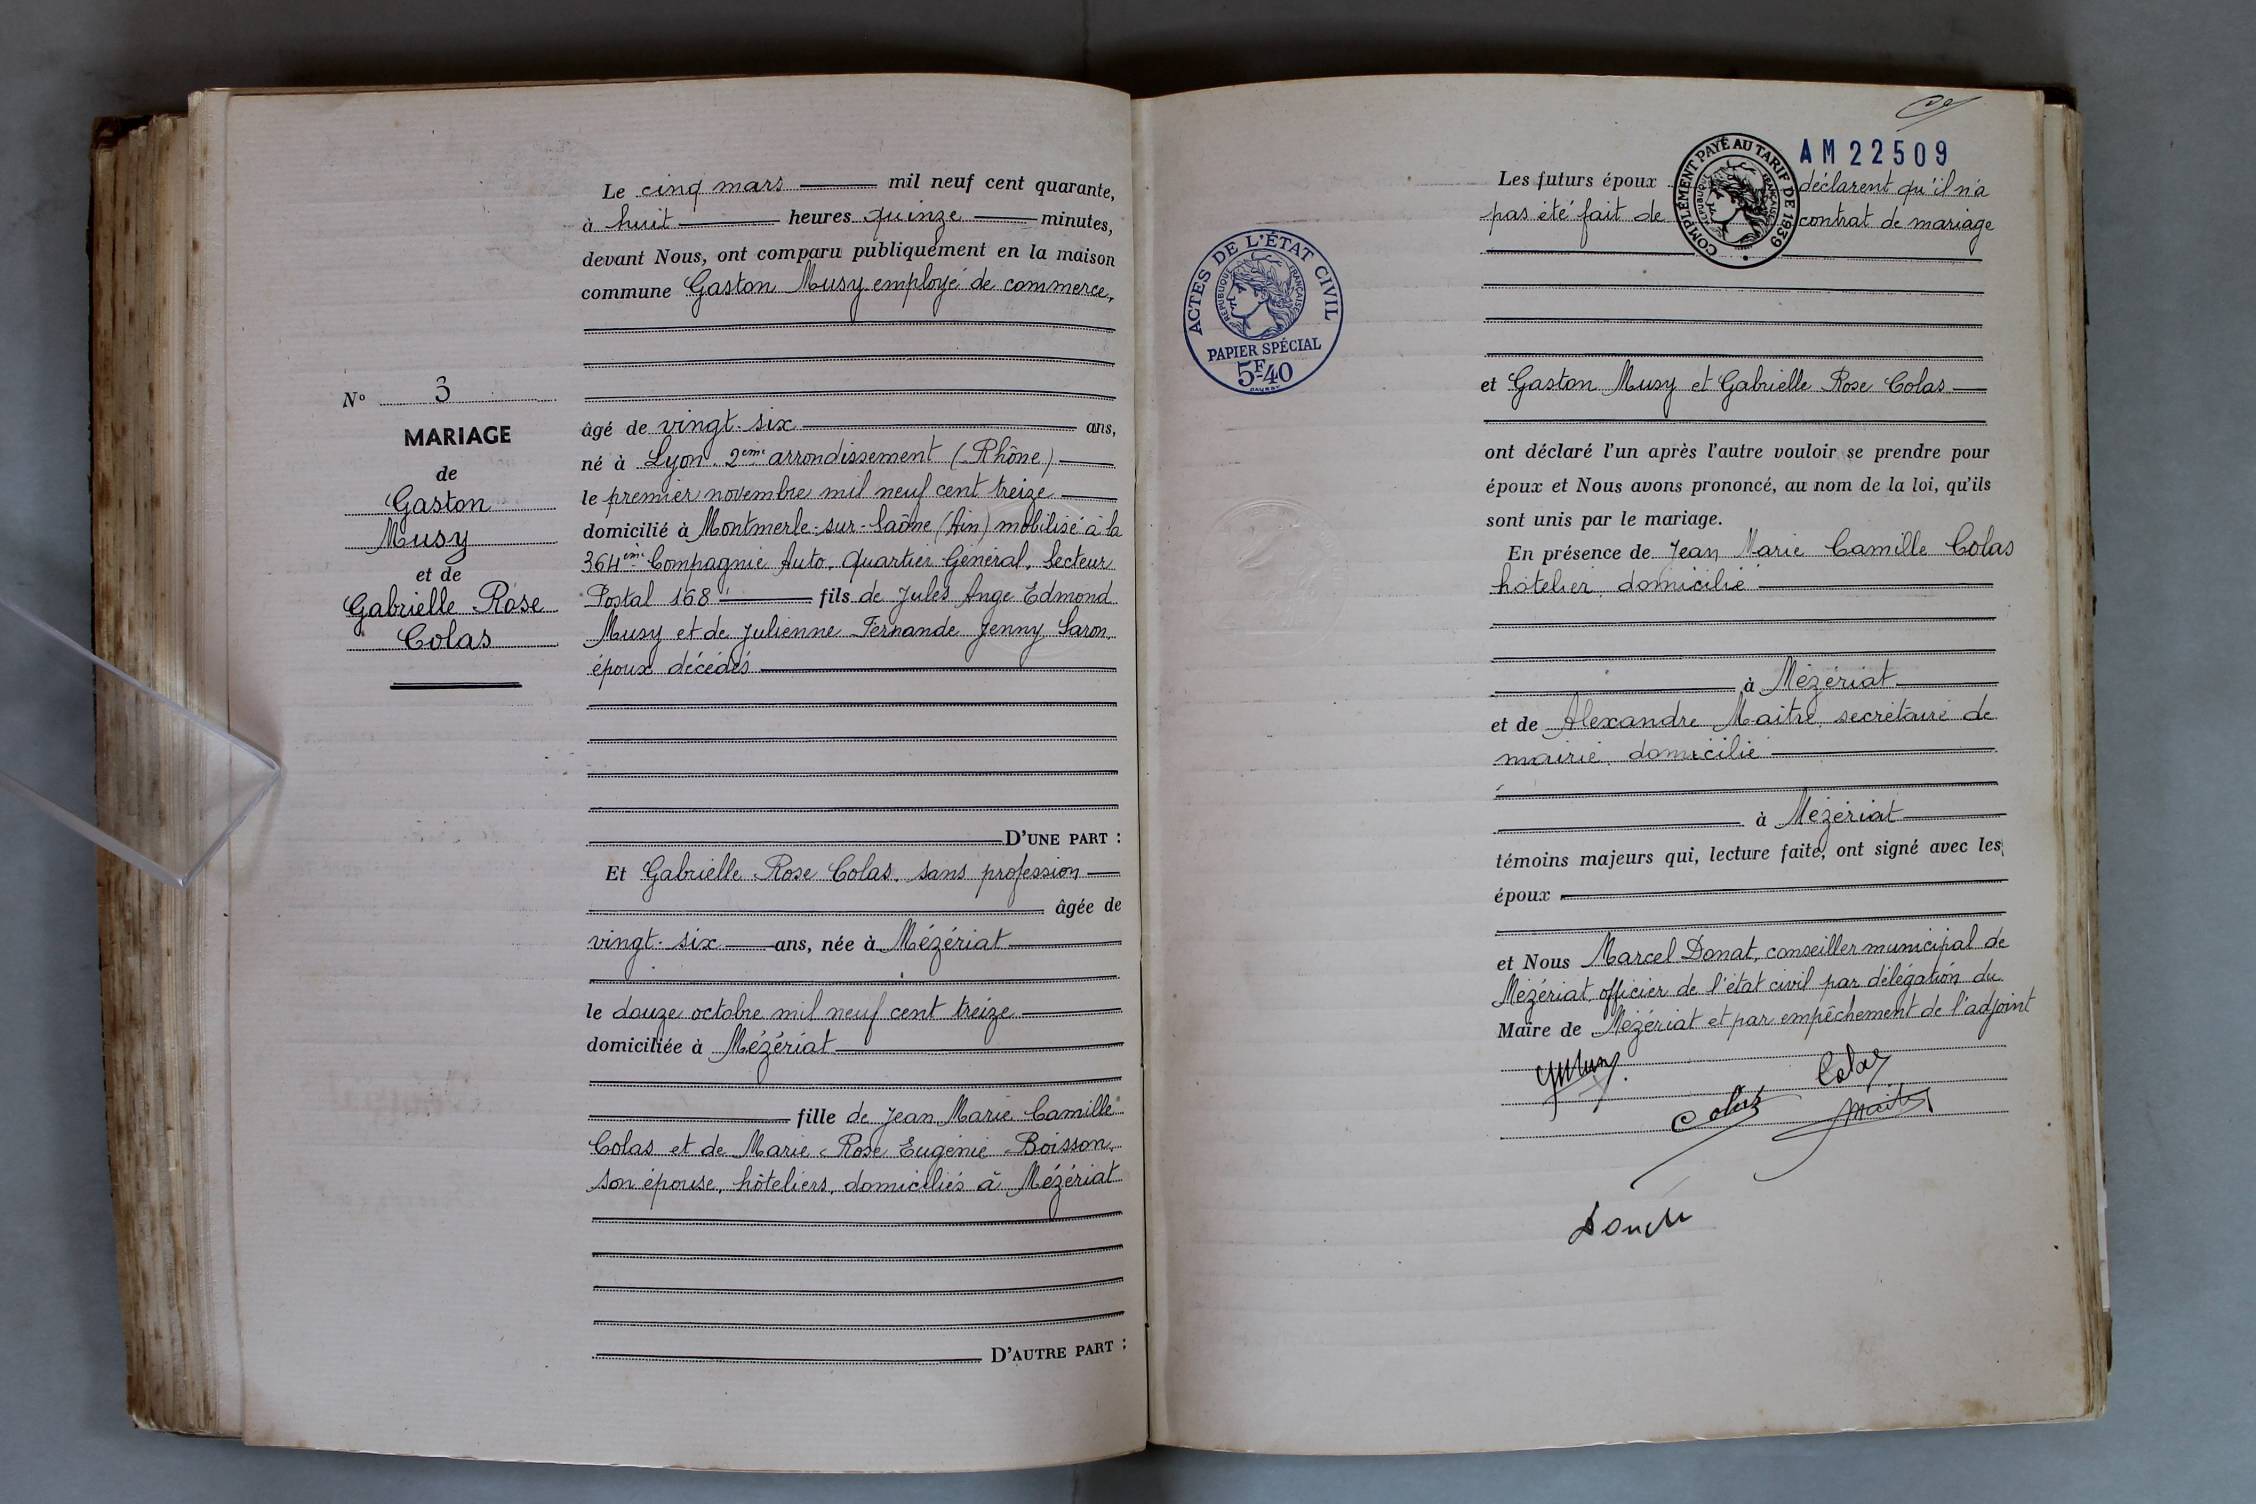 Le cinq mars mil neuf cent quarante,
à huit heures quinze minutes,
devant Nous, ont comparu publiquement en la maison
commune Gaston Musy employé de commerce,
N° 3
MARIAGE
de
Gaston
Musy
et de
Gabrielle Rose
Colas
âgé de vingt-six ans,
né à Lyon 2ème arrondissement (Rhône)
le premier novembre mil neuf cent treize
domicilié à Montmerle-sur-Saône (Ain) mobilisé à la
364ème Compagnie Auto, Quartier Général, Secteur
Postal 168 fils de Jules Ange Edmond
Musy et de Julienne Fernande Jenny Saron,
époux décédés
D'UNE PART :
Et Gabrielle Rose Colas, sans profession
âgée de
vingt-six ans, née à Mézériat
le douze octobre mil neuf cent treize
domiciliée à Mézériat
fille de Jean Marie Camille
Colas et de Marie Rose Eugénie Boisson,
son épouse, hôteliers, domiciliés à Mézériat
D'AUTRE PART :
AM22509
COMPLÉMENT PAYÉ AU TARIF DE 1939
RÉPUBLIQUE FRANÇAISE
Les futurs époux déclarent qu'il n'a
pas été fait de contrat de mariage
ACTES DE L'ÉTAT CIVIL
RÉPUBLIQUE FRANÇAISE
PAPIER SPÉCIAL
5F40
et Gaston Musy et Gabrielle Rose Colas
ont déclaré l'un après l'autre vouloir se prendre pour
époux et Nous avons prononcé, au nom de la loi, qu'ils
sont unis par le mariage.
En présence de Jean Marie Camille Colas
hôtelier, domicilié
à Mézériat
et de Alexandre Maitre, secrétaire de
mairie, domicilié
à Mézériat
témoins majeurs qui, lecture faite, ont signé avec les
époux
et Nous Marcel Donat, conseiller municipal de
Mézériat, officier de l'état civil par délégation du
Maire de Mézériat et par empêchement de l'adjoint
Colas
Colas
Maitre